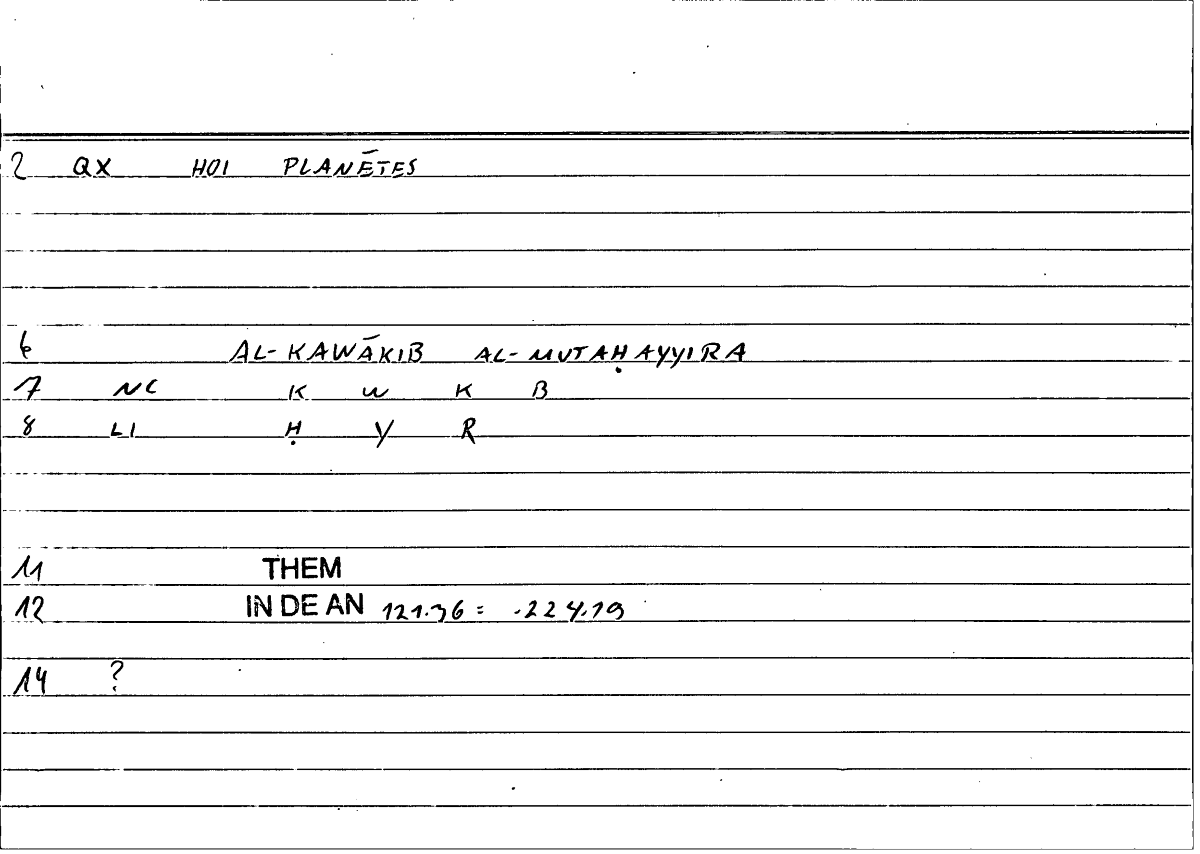 2 QX HOI PLANĒTES
6 AL-KAWĀKIB AL-MUTAḤAYYIRA
7 NC K W K B
8 LI Ḥ Y R
11 THEM
12 IN DE AN 121.36 = .224.19
14 ?